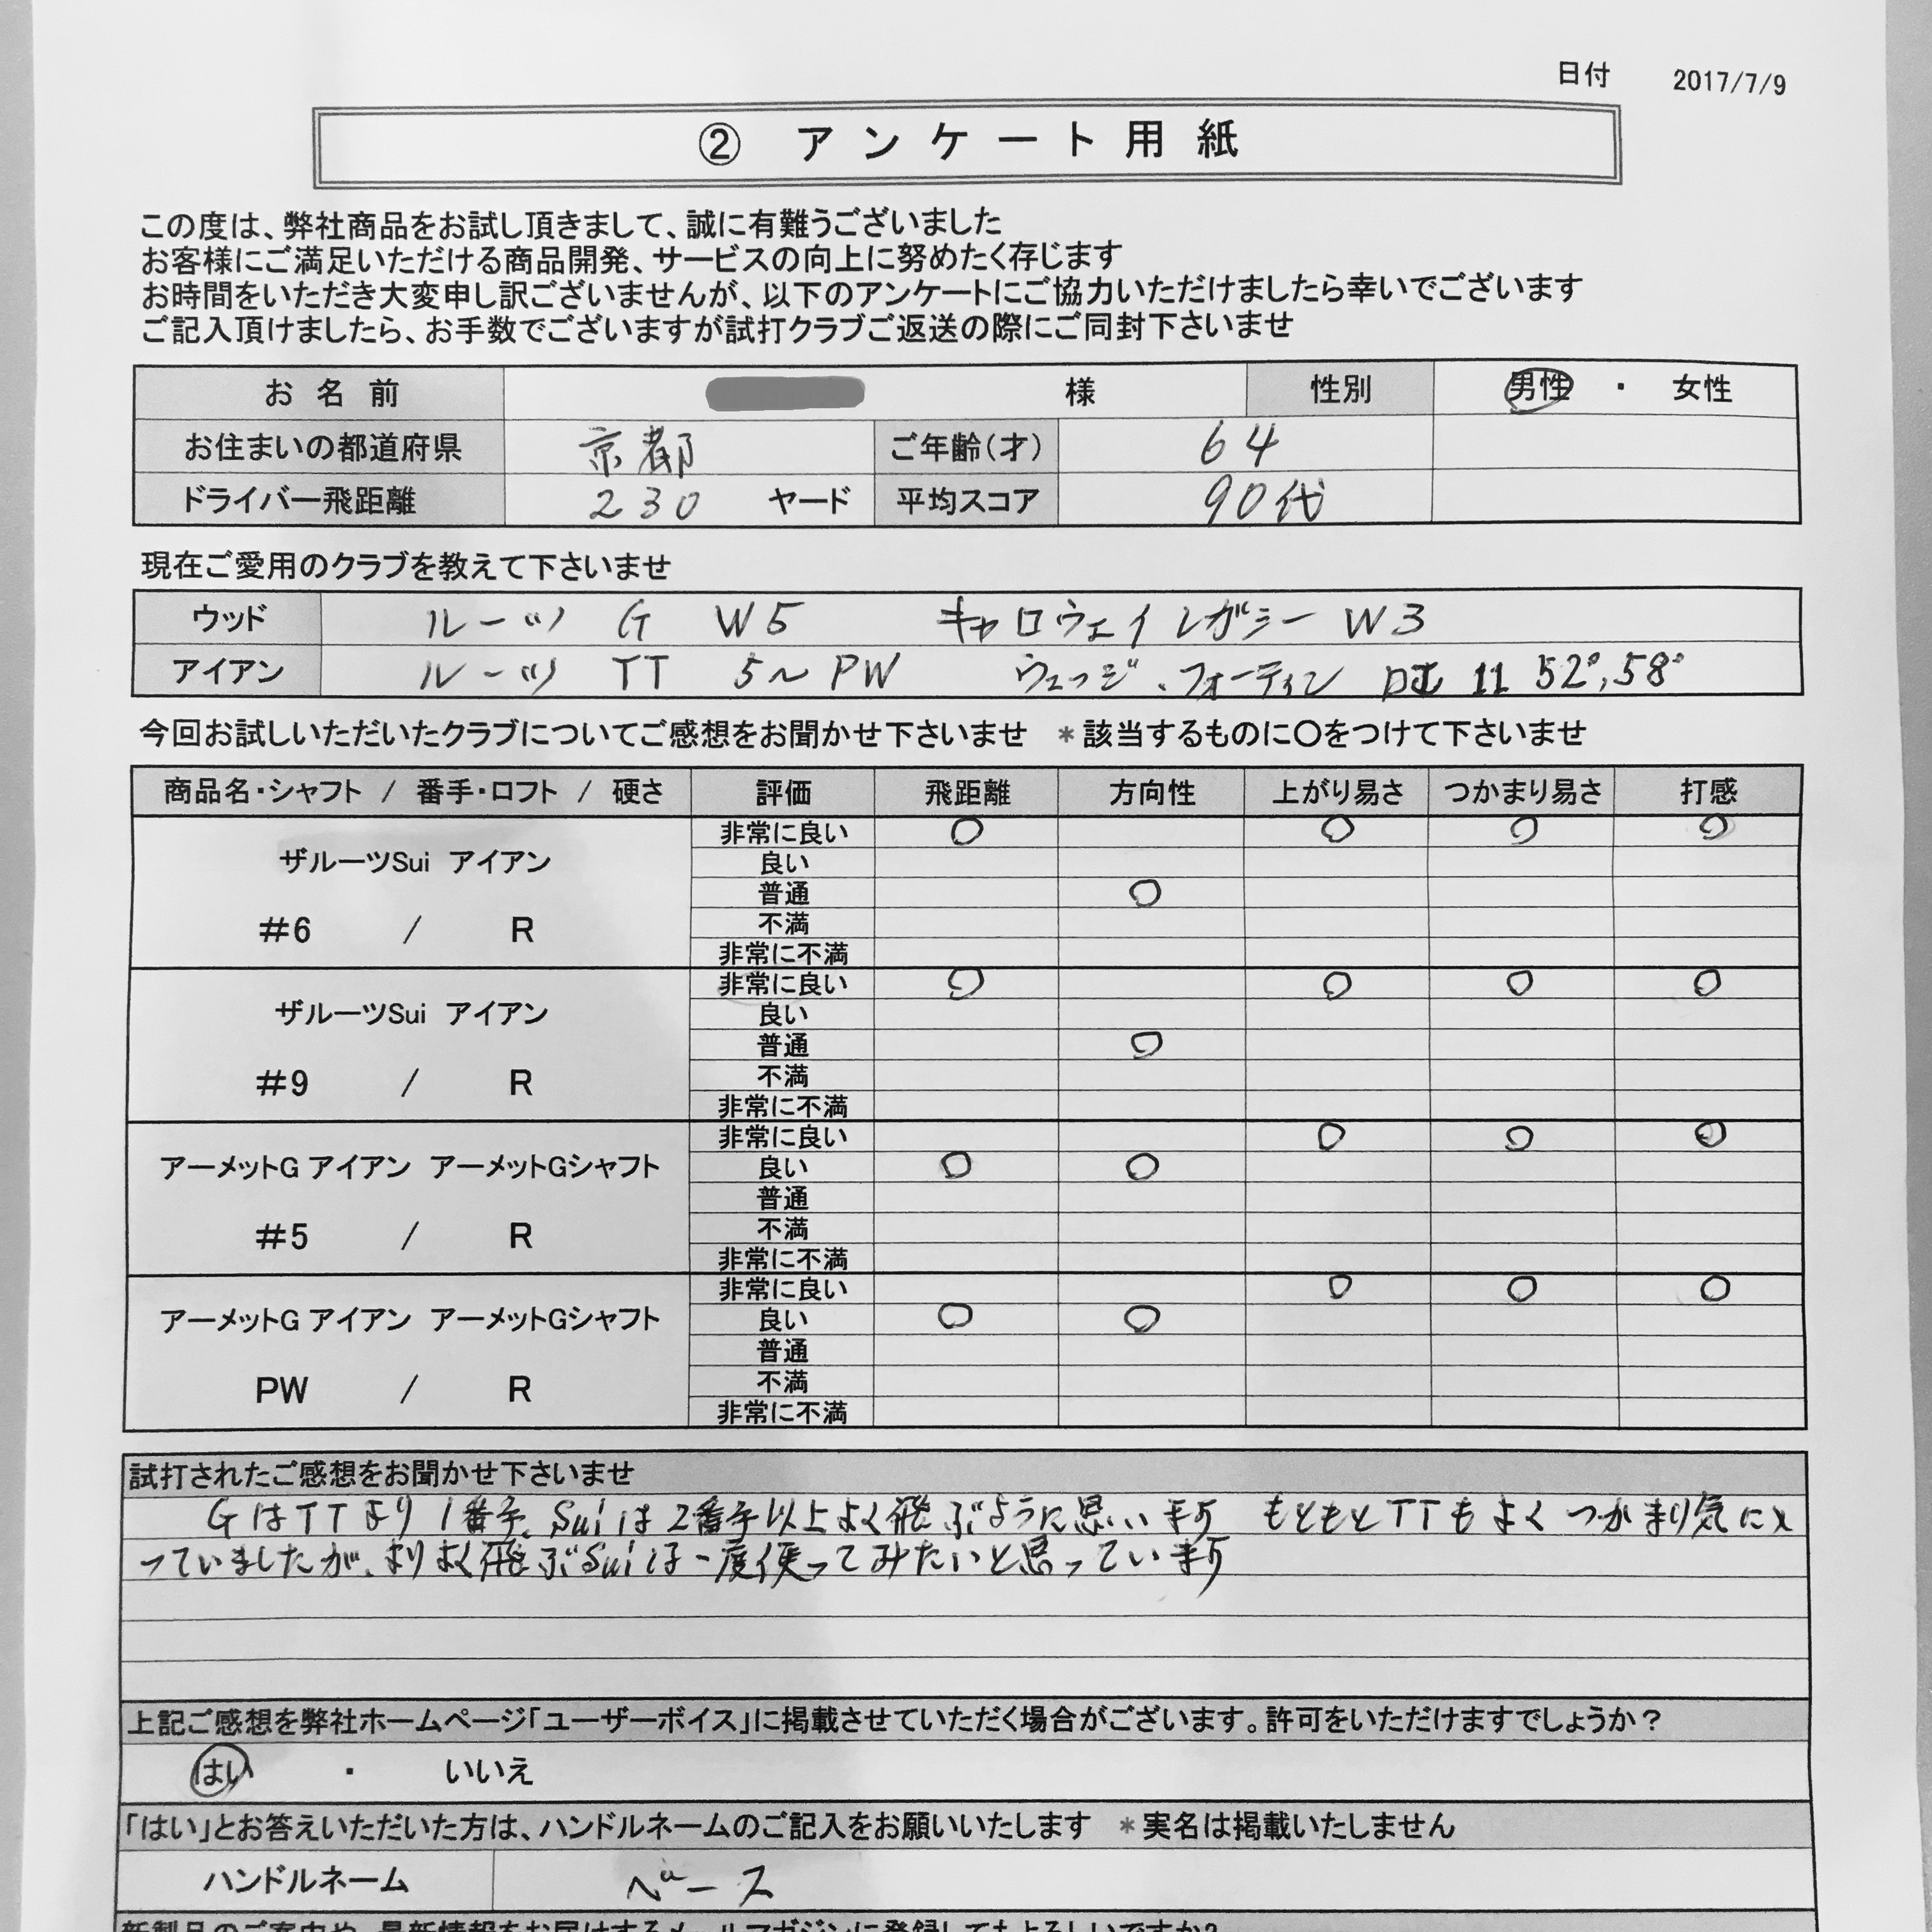 日付 2017/7/9
② アンケート用紙
この度は、弊社商品をお試し頂きまして、誠に有難うございました
お客様にご満足いただける商品開発、サービスの向上に努めたく存じます
お時間をいただき大変申し訳ございませんが、以下のアンケートにご協力いただけましたら幸いでございます
ご記入頂けましたら、お手数でございますが試打クラブご返送の際にご同封下さいませ
お名前 様 性別 男性 ・ 女性
お住まいの都道府県 京都 ご年齢(才) 64
ドライバー飛距離 230 ヤード 平均スコア 90代
現在ご愛用のクラブを教えて下さいませ
ウッド ルーツ G W5 キャロウェイ レガシー W3
アイアン ルーツ TT 5〜PW ウェッジ、フォーティン 11 52°,58°
今回お試しいただいたクラブについてご感想をお聞かせ下さいませ *該当するものに〇をつけて下さいませ
商品名・シャフト / 番手・ロフト / 硬さ 評価 飛距離 方向性 上がり易さ つかまり易さ 打感
非常に良い 〇 〇 〇 〇
ザルーツSui アイアン 良い
普通 〇
#6 / R 不満
非常に不満
非常に良い 〇 〇 〇 〇
ザルーツSui アイアン 良い
普通 〇
#9 / R 不満
非常に不満
非常に良い 〇 〇 〇
アーメットG アイアン アーメットGシャフト 良い 〇 〇
普通
#5 / R 不満
非常に不満
非常に良い 〇 〇 〇
アーメットG アイアン アーメットGシャフト 良い 〇 〇
普通
PW / R 不満
非常に不満
試打されたご感想をお聞かせ下さいませ
GはTTより1番手、Suiは2番手以上よく飛ぶように思います もともとTTもよくつかまり気に入
っていましたが、よりよく飛ぶSuiは一度使ってみたいと思っています
上記ご感想を弊社ホームページ「ユーザーボイス」に掲載させていただく場合がございます。許可をいただけますでしょうか?
はい ・ いいえ
「はい」とお答えいただいた方は、ハンドルネームのご記入をお願いいたします *実名は掲載いたしません
ハンドルネーム ベース
新製品のご案内や、最新情報をお届けするメールマガジンに登録してもよろしいですか?